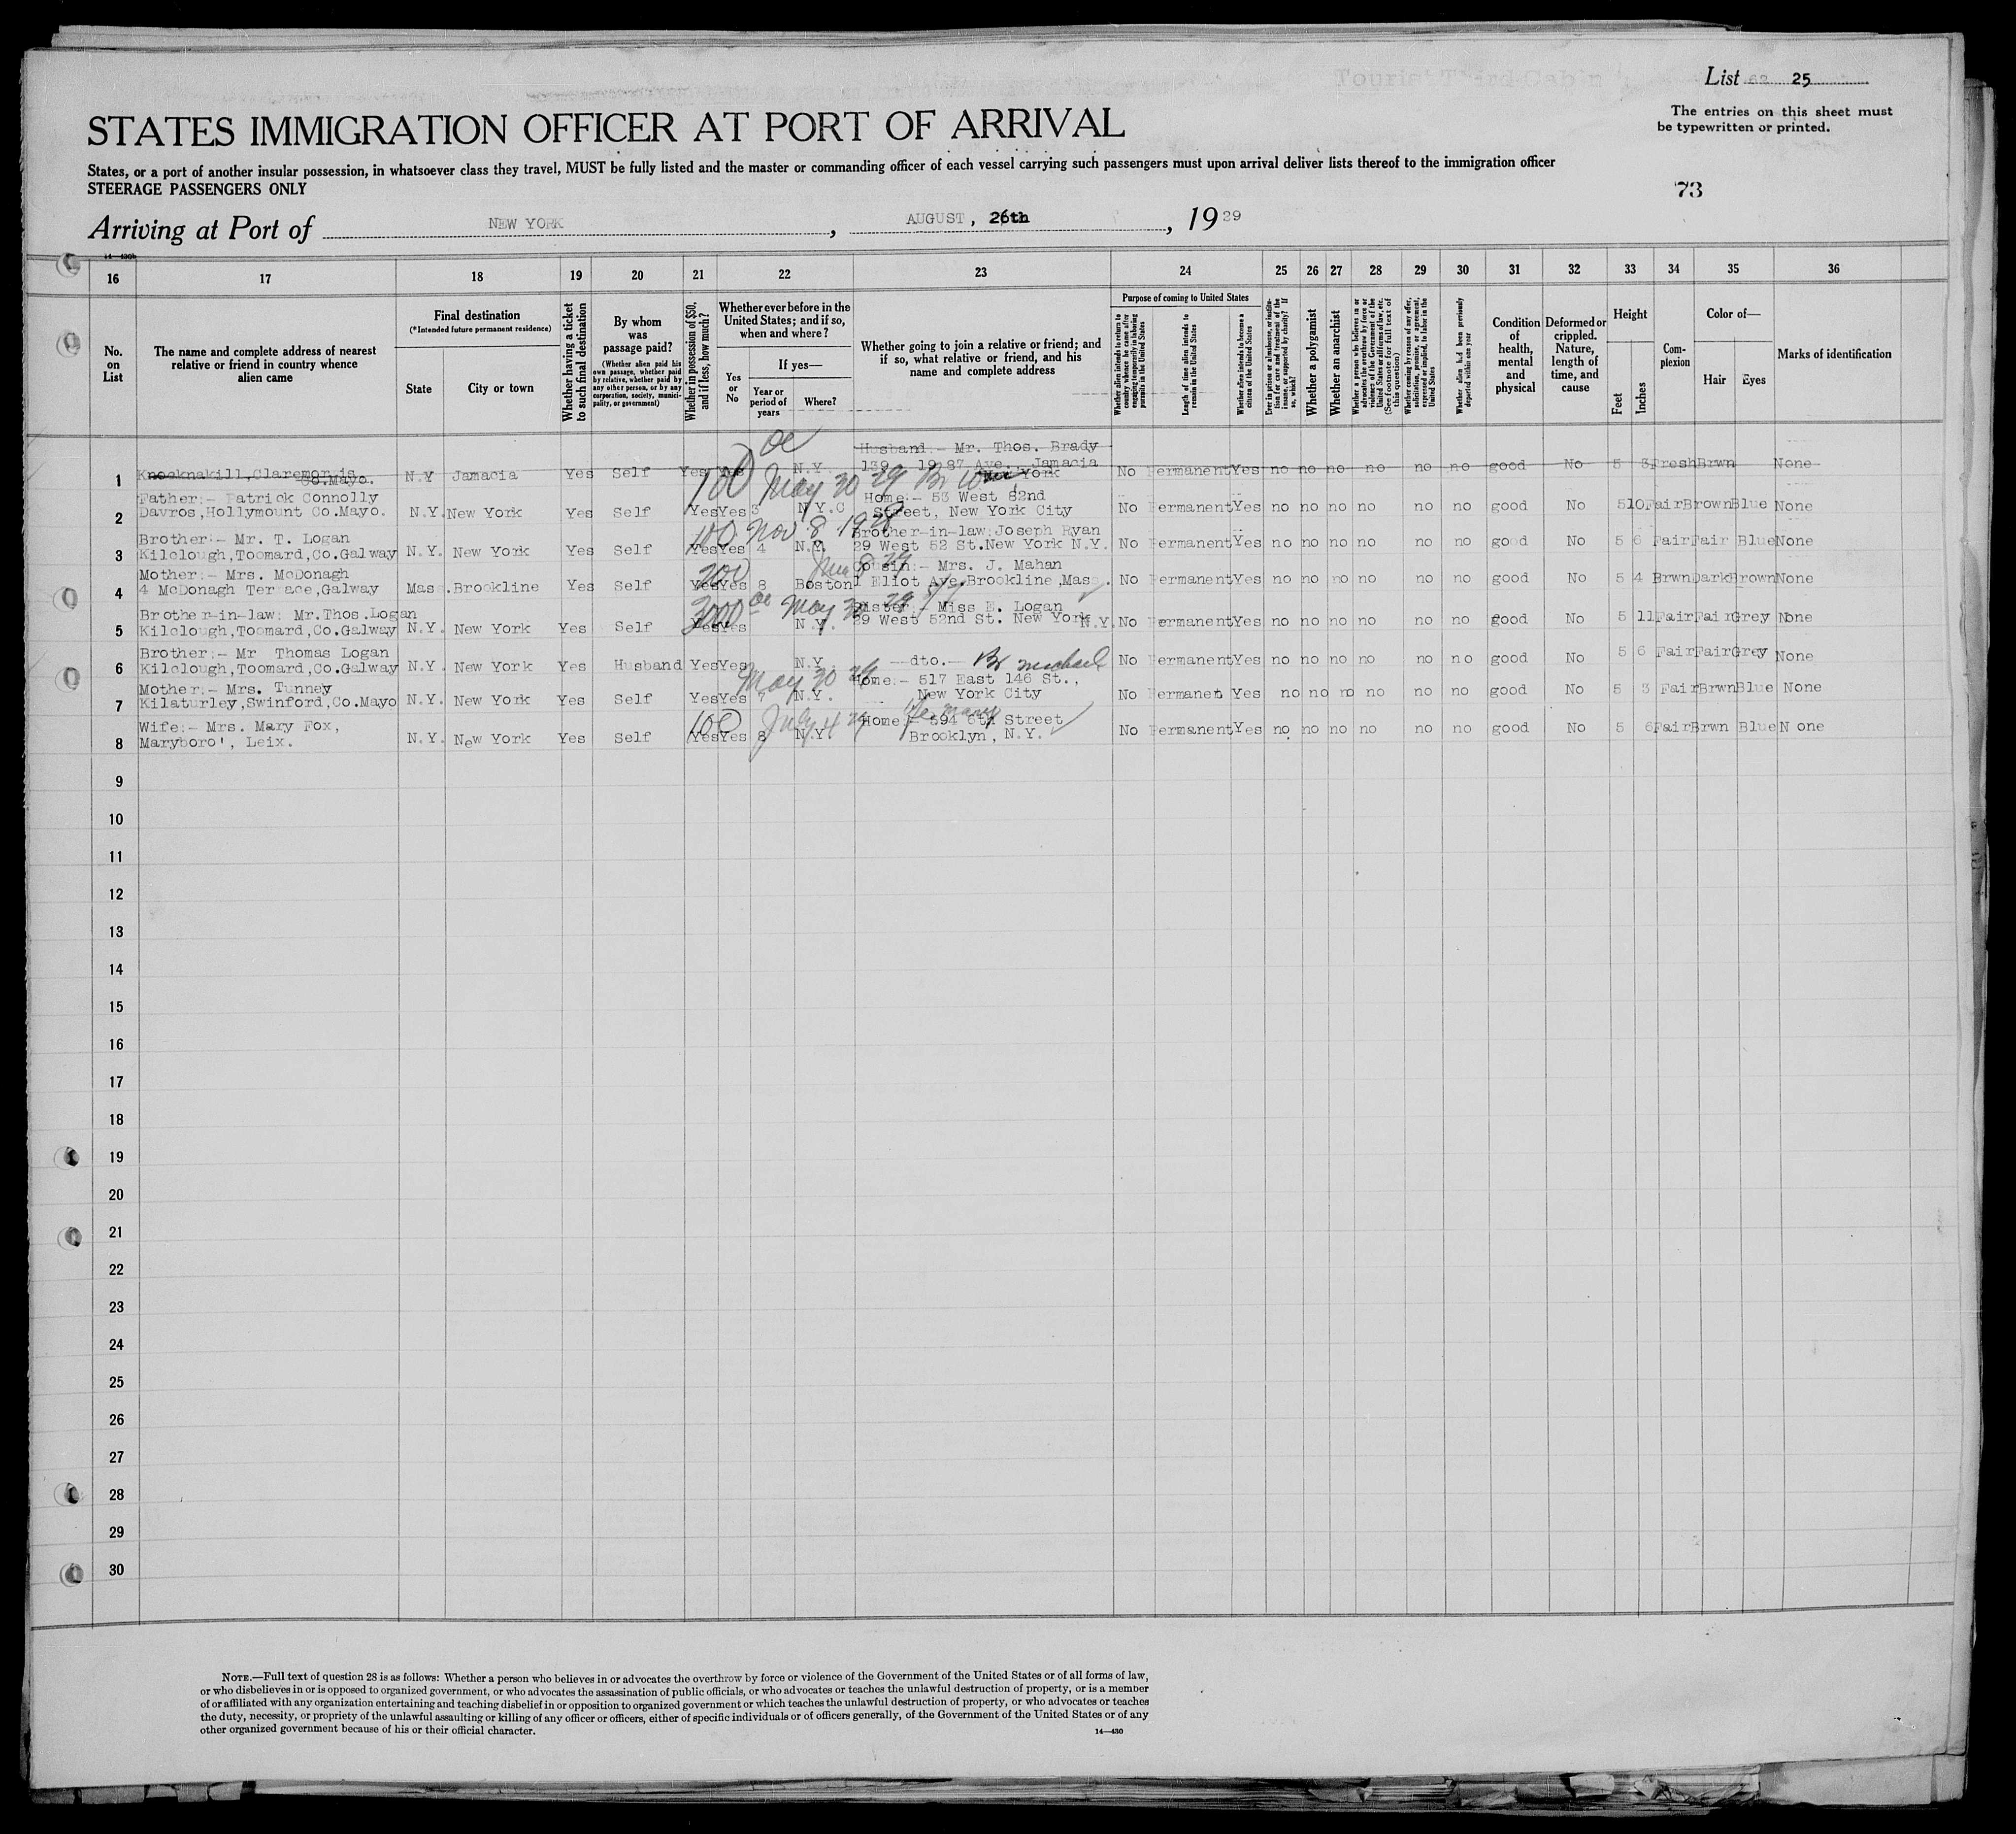 Tourist Third Cabin
List 62 25
The entries on this sheet must
be typewritten or printed.
STATES IMMIGRATION OFFICER AT PORT OF ARRIVAL
States, or a port of another insular possession, in whatsoever class they travel, MUST be fully listed and the master or commanding officer of each vessel carrying such passengers must upon arrival deliver lists thereof to the immigration officer
STEERAGE PASSENGERS ONLY
73
Arriving at Port of NEW YORK, AUGUST, 26th, 1929
14—430b
16 17 18 19 20 21 22 23 24 25 26 27 28 29 30 31 32 33 34 35 36
No.
on
List
The name and complete address of nearest
relative or friend in country whence
alien came
Final destination
(*Intended future permanent residence)
State
City or town
Whether having a ticket
to such final destination
By whom
was
passage paid?
(Whether alien paid his
own passage, whether paid
by relative, whether paid by
any other person, or by any
corporation, society, munici-
pality, or government)
Whether in possession of $50,
and if less, how much?
Whether ever before in the
United States; and if so,
when and where?
Yes
or
No
If yes—
Year or
period of
years
Where?
Whether going to join a relative or friend; and
if so, what relative or friend, and his
name and complete address
Purpose of coming to United States
Whether alien intends to return to
country whence he came after
engaging temporarily in laboring
pursuits in the United States
Length of time alien intends to
remain in the United States
Whether alien intends to become a
citizen of the United States
Ever in prison or almshouse, or institu-
tion for care and treatment of the
insane, or supported by charity? If
so, which?
Whether a polygamist
Whether an anarchist
Whether a person who believes in or
advocates the overthrow by force or
violence of the Government of the
United States or all forms of law, etc.
(See footnote for full text of
this question)
Whether coming by reason of any offer,
solicitation, promise, or agreement,
expressed or implied, to labor in the
United States
Whether alien had been previously
deported within one year
Condition
of
health,
mental
and
physical
Deformed or
crippled.
Nature,
length of
time, and
cause
Height
Feet
Inches
Com-
plexion
Color of—
Hair
Eyes
Marks of identification
oc
Husband:- Mr. Thos. Brady
139 - 19 87 Ave. Jamacia
1 Knocknakill,Claremorris Co.Mayo. N.Y Jamacia Yes Self Yes Yes N.Y. New York No Permanent Yes no no no no no no good No 5 3 Fresh Brwn None
100 May 30 29 Br
Father:- Patrick Connolly Home:- 53 West 82nd
2 Davros,Hollymount Co.Mayo. N.Y. New York Yes Self Yes Yes 3 N.Y.C Street, New York City No Permanent Yes no no no no no no good No 5 10 Fair Brown Blue None
100 Nov 8 1928
Brother:- Mr. T. Logan Brother-in-law:Joseph Ryan
3 Kilclough,Toomard,Co.Galway N.Y. New York Yes Self Yes Yes 4 N.Y. 29 West 52 St.New York N.Y. No Permanent Yes no no no no no no good No 5 6 Fair Fair Blue None
200
Mother:- Mrs. McDonagh Cousin:- Mrs. J. Mahan
4 4 McDonagh Terrace,Galway Mass. Brookline Yes Self Yes Yes 8 Boston 1 Eliot Ave,Brookline,Mass. No Permanent Yes no no no no no no good No 5 4 Brwn Dark Brown None
3000 oc May 30 29
Brother-in-law: Mr.Thos.Logan Sister:- Miss E. Logan
5 Kilclough,Toomard,Co.Galway N.Y. New York Yes Self Yes Yes N.Y. 29 West 52nd St. New York N.Y. No Permanent Yes no no no no no no good No 5 11 Fair Fair Grey None
Brother:- Mr Thomas Logan
6 Kilclough,Toomard,Co.Galway N.Y. New York Yes Husband Yes Yes N.Y. —dto.— Br Michael No Permanent Yes no no no no no no good No 5 6 Fair Fair Grey None
May 30 29
Mother:- Mrs. Tunney Home:- 517 East 146 St.,
7 Kilaturley,Swinford,Co.Mayo N.Y. New York Yes Self Yes Yes 7 N.Y. New York City No Permanet Yes no no no no no no good No 5 3 Fair Brwn Blue None
100 July 4 29 Mary
Wife:- Mrs. Mary Fox, Home:- 594 6th Street
8 Maryboro', Leix. N.Y. New York Yes Self Yes Yes 8 N.Y. Brooklyn, N.Y. No Permanent Yes no no no no no no good No 5 6 Fair Brwn Blue None
9
10
11
12
13
14
15
16
17
18
19
20
21
22
23
24
25
26
27
28
29
30
NOTE.—Full text of question 28 is as follows: Whether a person who believes in or advocates the overthrow by force or violence of the Government of the United States or of all forms of law,
or who disbelieves in or is opposed to organized government, or who advocates the assassination of public officials, or who advocates or teaches the unlawful destruction of property, or is a member
of or affiliated with any organization entertaining and teaching disbelief in or opposition to organized government or which teaches the unlawful destruction of property, or who advocates or teaches
the duty, necessity, or propriety of the unlawful assaulting or killing of any officer or officers, either of specific individuals or of officers generally, of the Government of the United States or of any
other organized government because of his or their official character.
14—430